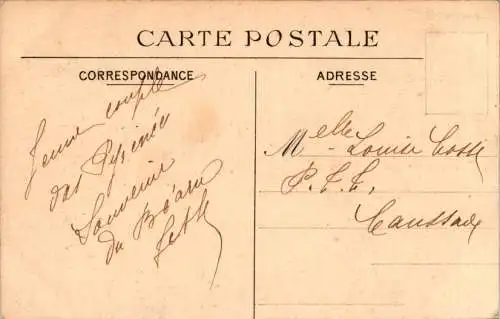 CARTE POSTALE
CORRESPONDANCE
Jeune couple
des Pyrénées
Souvenir
du Béarn
ADRESSE
Melle Louise
Caussade